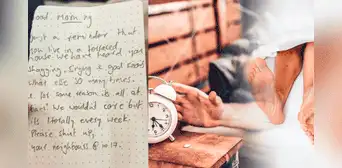 Good Morning
Just a reminder that
you live in a terraced
house we have heard you
shagging, singing & god knows
what else 20 many times.
& for some reason its all at
hours! We wouldnt care but
its literally every week.
Please shut up,
your neighbours, 6 17.